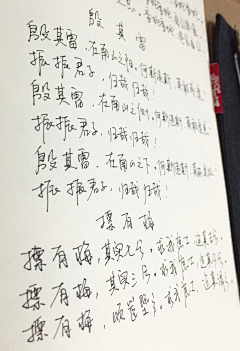 殷其雷
殷其雷，在南山之阳。何斯违斯，莫敢或遑。
振振君子，归哉归哉！
殷其雷，在南山之侧。何斯违斯，莫敢遑息。
振振君子，归哉归哉！
殷其雷，在南山之下。何斯违斯，莫或遑处。
振振君子，归哉归哉！
摽有梅
摽有梅，其实七兮。求我庶士，迨其吉兮。
摽有梅，其实三兮。求我庶士，迨其今兮。
摽有梅，顷筐塈之。求我庶士，迨其谓之。